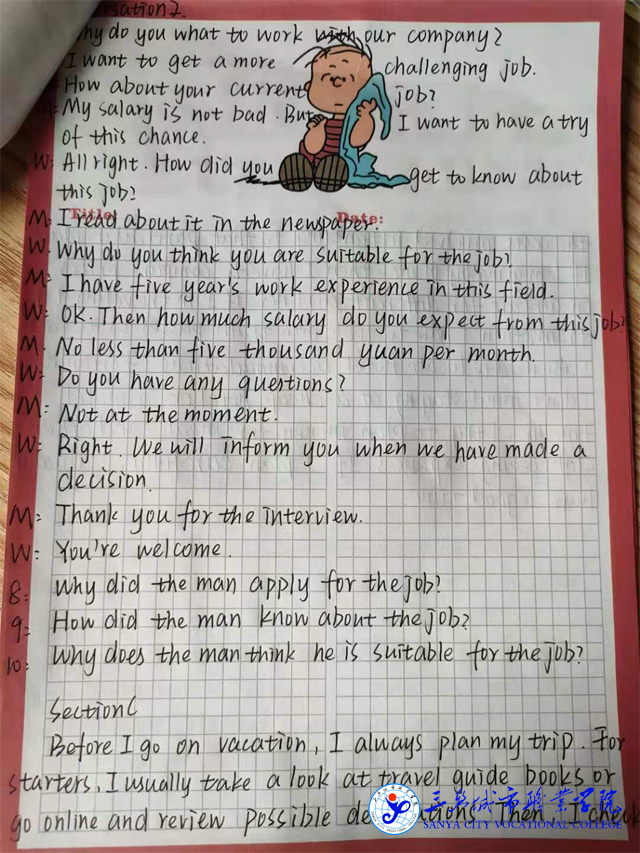 ersation 2.
Why do you what to work with our company?
I want to get a more challenging job.
How about your current job?
My salary is not bad. But I want to have a try
of this chance.
W: All right. How did you get to know about
this job?
Title: Date:
M: I read about it in the newspaper.
W. Why do you think you are suitable for the job?
M: I have five year's work experience in this field.
W: OK. Then how much salary do you expect from this job?
M. No less than five thousand yuan per month.
W: Do you have any questions?
M: Not at the moment.
W: Right. We will inform you when we have made a
decision.
M: Thank you for the interview.
W: You're welcome.
8: Why did the man apply for the job?
9: How did the man know about the job?
10: Why does the man think he is suitable for the job?
Section C
Before I go on vacation, I always plan my trip. For
starters, I usually take a look at travel guide books or
go online and review possible de ations Then, I check
三亚城市职业学院
SANYA CITY VOCATIONAL COLLEGE